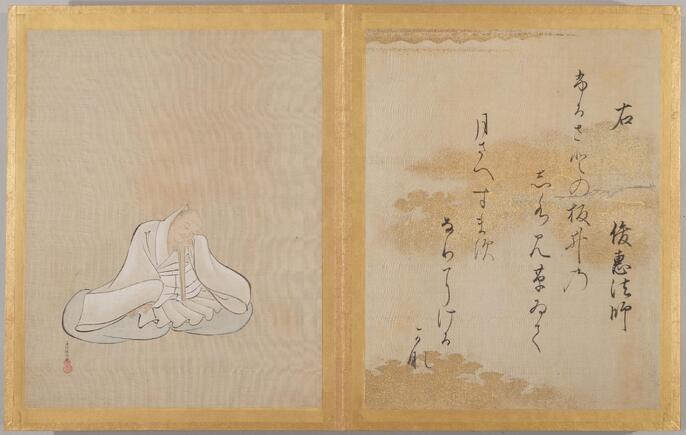 右 俊恵法師
ふるさとの板井の
し水み草ゐて
月さへすまず
なりにける
かな